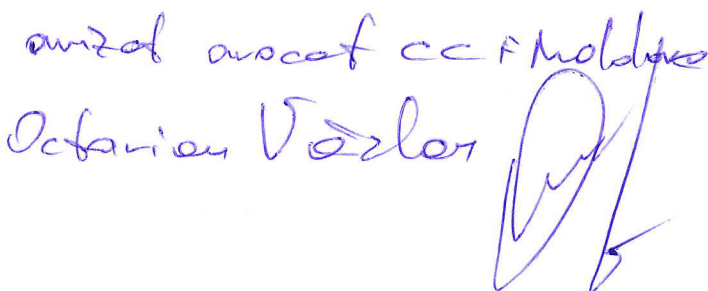 avizat avocat CCF Moldova
Octavian Vâzlan